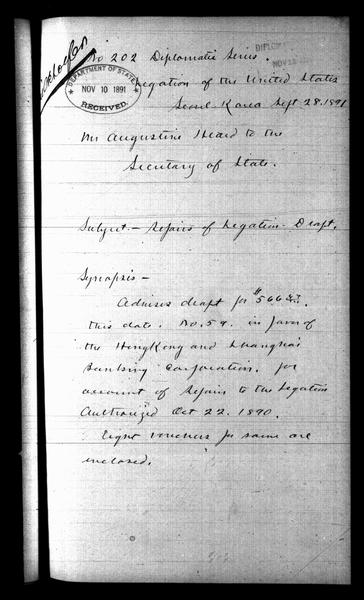 No 202 Diplomatic Series.
DEPARTMENT OF STATE
NOV 10 1891
RECEIVED.
Legation of the United States
Seoul Korea Sept. 28. 1891
Mr Augustine Heard to the
Secretary of State.
Subject.- Repairs of Legation. Draft.
Synopsis-
Advises draft for
this date. No. 59. in favor of
the HongKong and Shanghai
Banking Corporation. for
account of Repairs to the Legation
Authorized Oct 22. 1890.
Eight vouchers for same are
enclosed.